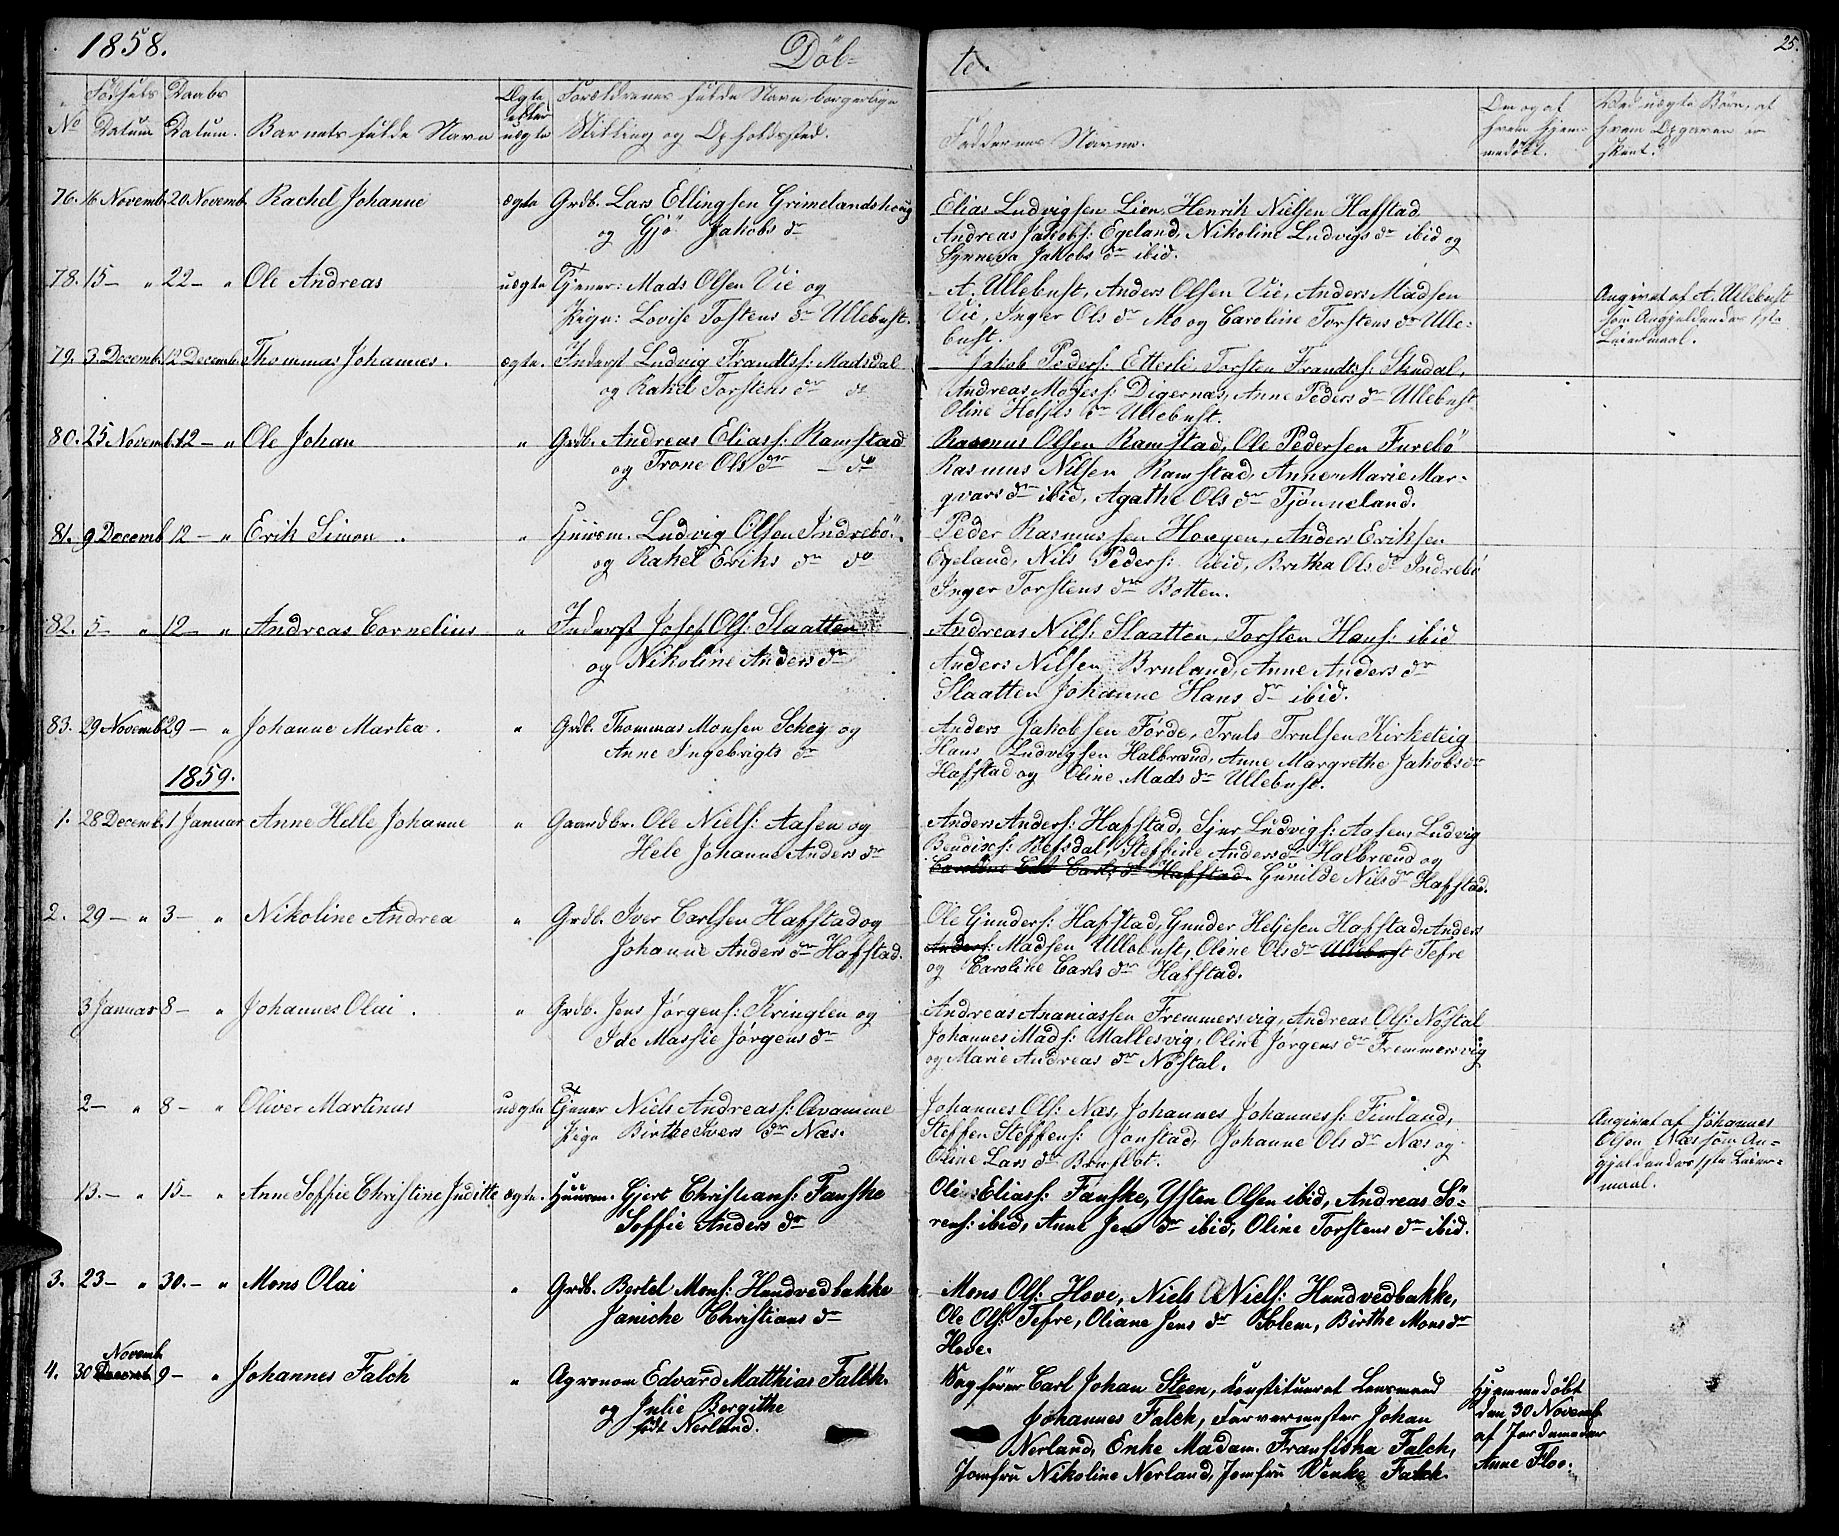 1858.
Döb-
te.
25.
No
Fødsels Datum
Daabs Datum.
Barnets fulde Navn
Ægte eller uægte
Forældrenes fulde Navn, borgerlige Stilling og Opholdsted.
Faddernes Navne.
Om og af hvem hjemmedøbt.
Ved uægte Børn, af hvem Opgaven er skeet.
76. 16 Novemb. 20 Novemb. Rachel Johanne ægte Grdb. Lars Ellingsen Grimelandshoug
og Gjö Jakobs dr
Elias Ludvigsen Lien, Henrik Nielsen Hafstad
Andreas Jakobs: Egeland, Nikoline Ludvigs dr ibid og
Synneva Jakobs dr ibid.
78. 15 - " 22 - " Ole Andreas uægte Tjener: Mads Olsen Vie og
Pige: Lovise Tostens dr Ullebust.
A. Ullebust, Anders Olsen Vie, Anders Madsen
Vie, Inger Ols dr Mo og Caroline Torstens dr Ulle-
bust.
Angivet af A. Ullebust
som Angjeldendes 1ste
Leiermaal.
79. 3 Decemb. 12 Decemb. Thommas Johannes. ægte. Inderst Ludvig Frandts: Madsdal
og Rakel Torstens dr do
Jakob Peders: Etterli, Torsten Frandts: Skudal,
Andreas Moses: Digernæs, Anne Peders dr Ullebust
Oline Heljes dr Ullebust.
80. 25 Novemb. 12 - " Ole Johan " Grdb. Andreas Elias: Ramstad
og Trone Ols dr - do
Rasmus Olsen Ramstad, Ole Pedersen Furebö
Rasmus Nilsen Ramstad, Anne Marie Mar-
gvars dr ibid, Agathe Ols dr Tjönneland.
81. 9 Decemb 12 - " Erik Simon. " Huusm. Ludvig Olsen Indrebö
og Rakel Eriks dr do
Peder Rasmussen Hougen, Anders Eriksen
Egeland, Nils Peders: ibid, Britha Ols dr Indrebö
Inger Torstens dr Botten.
82. 5 - " 12 - " Andreas Cornelius " Inderst Josef Ols: Slaatten
og Nikoline Anders dr
Andreas Nils: Slaatten, Torsten Hans: ibid
Anders Nilsen Bruland, Anne Anders dr
Slaatten Johanne Hans dr ibid.
83. 29 Novemb. 29 - " Johanne Martea. " Grdb. Thommas Monsen Schey og
Anne Ingebrigts dr
Anders Jakobsen Förde, Truls Trulsen Kirketeig
Hans Ludvigsen Halbrænd, Anne Margrethe Jakobs dr
Hafstad og Oline Mads dr Ullebust.
1859.
1. 28 Decemb. 1 Januar Anne Helle Johanne " Gaardbr. Ole Niels: Aasen og
Hele Johanne Anders dr
Anders Anders: Hafstad, Sjur Ludvigs: Aasen, Ludvig
Bendixs: Refsdal, Steffine Anders dr Halbrænd og
Caroline Carls dr Hafstad. Gunilde Nils dr Hafstad.
2. 29 - " 3 - " Nikoline Andrea " Grdb. Iver Carlsen Hafstad og
Johanne Anders dr Hafstad.
Ole Gunders: Hafstad, Gunder Heljesen Hafstad, Anders
Anders: Madsen Ullebust, Oline Ols dr Ullebust Tefre
og Caroline Carls dr Hafstad.
3 Januar 8 - " Johannes Olai. " Grdb. Jens Jørgens: Kringlen og
Ide Massie Jørgens dr
Andreas Ananiassen Fremmersvig, Andreas Ols: Nöstal
Johannes Mads: Mallesvig, Oline Jørgens dr Fremmersvig
og Marie Andreas dr Nöstal.
2 - " 8 - " Oliver Martinus uægte Tjener Niels Andreas: Qvamme
Pige Birthe Ivers dr Næs.
Johannes Ols: Næs, Johannes Johannes: Timland,
Steffen Steffens: Jonstad, Johanne Ols dr Næs og
Oline Lars dr Bruflot.
Angivet af Johannes
Olsen Næs som An-
gjeldendes 1ste Leier-
maal.
13. - " 15 - " Anne Soffie Christine Juditte ægte. Huusm. Gjert Christians: Fanske
Soffie Anders dr
Ole Elias: Fanske, Ysten Olsen ibid, Andreas Sö-
rens: ibid, Anne Jens dr ibid, Oline Torstens dr ibid.
3. 23 - " 30. - " Mons Olai " Grdb. Bertel Mons: Hundvedbakke
Janiche Christians dr
Mons Ols: Hove, Niels Niels: Hundvedbakke,
Ole Ols: Tefre, Oliane Jens dr Solem, Birthe Mons dr
Hove.
4. 30 Decemb. Novemb. 9 - " Johannes Falch " Agronom Edvard Matthias Falch.
og Julie Bergithe
født Nerland.
Sagfører Carl Johan Steen, Konstitueret Lensmand
Johannes Falch, Farvermester Johan
Nerland, Enke Madam. Fransiska Falch,
Jomfru Nikoline Nerland, Jomfru Wenke Falch.
Hjemmedöbt
den 30 Novemb.
af Jordemoder
Anne Floe.